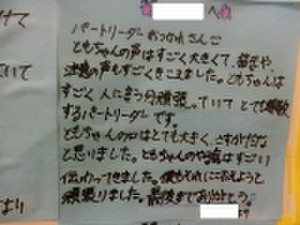 へ
パートリーダーおつかれさん
ともちゃんの声はすごく大きくて、
の声もすごくきこえました。ともちゃんは
すごく人に言う分頑張っていてとても尊敬
するパートリーダーです。
ともちゃんの口はとても大きく、さすがだな
と思いました。ともちゃんのやる気はすごい
伝わってきました。僕もそれにこたえようと
頑張りました。最後までありがとう。
けて
いて
より